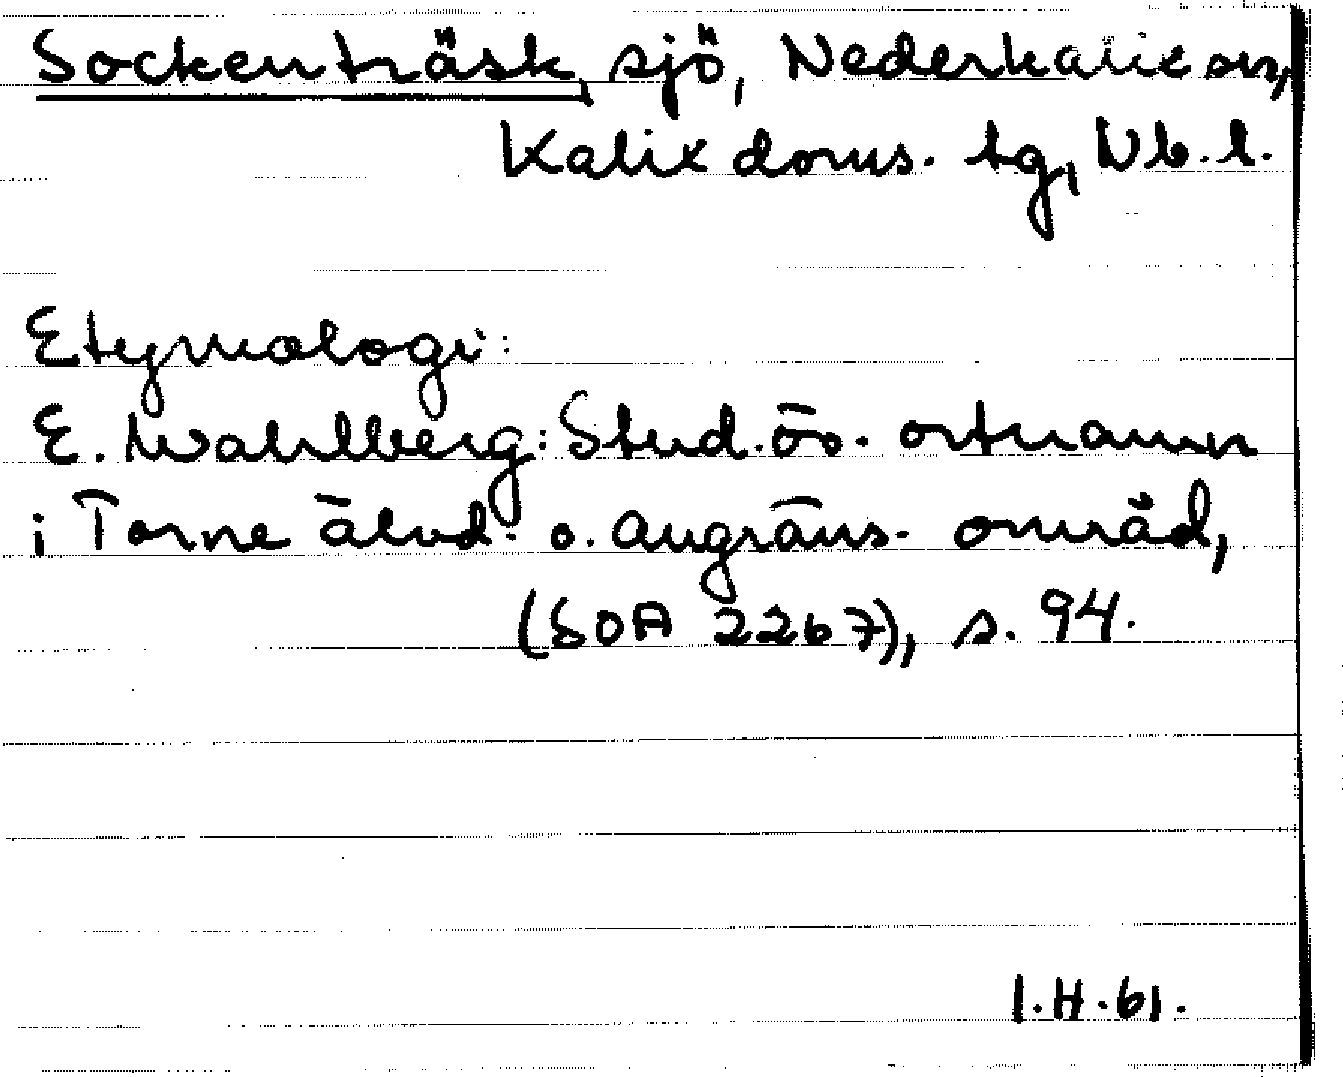 Sockenträsk, sjö, Nederkalix sn,
Kalix doms. tg, Nb. l.
Etymologi:
E. Wahlberg: Stud. öv. ortnamn
i Torne älvd. o. angräns. områd,
(SOA 2267), s. 94.
I.H.61.